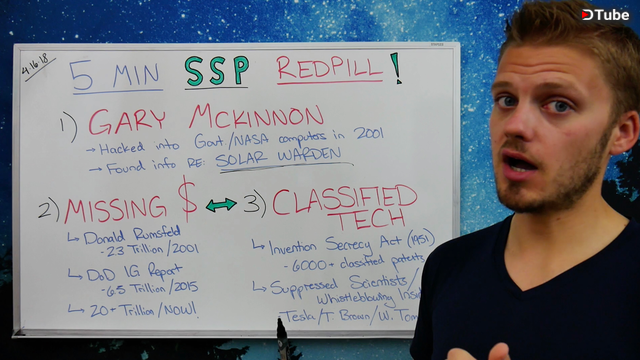 DTube
4.16.18
5 MIN SSP REDPILL!
1) GARY MCKINNON
→ Hacked into Govt/NASA computers in 2001
→ Found info RE: SOLAR WARDEN
2) MISSING $ ↔ 3) CLASSIFIED TECH
↳ Donald Rumsfeld
- 2.3 Trillion/2001
↳ DoD IG Report
- 6.5 Trillion/2015
↳ 20+ Trillion/NOW!
↳ Invention Secrecy Act (1951)
- 6000+ classified patents
↳ Suppressed Scientists/
Whistleblowing
Tesla/T. Brown/W.